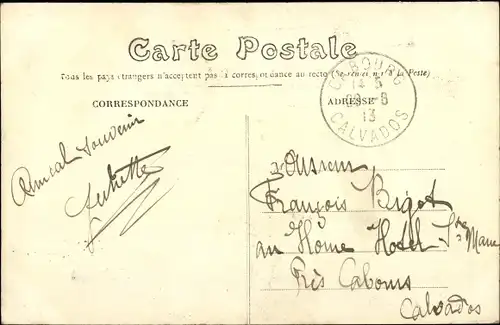 Carte Postale
Tous les pays étrangers n'acceptent pas la correspondance au recto (Se renseigner à la Poste)
CORRESPONDANCE
ADRESSE
CABOURG
13
CALVADOS
Amical souvenir
Juliette
Monsieur
François Bigot
au Home Hotel Ste Marie
Près Cabourg
Calvados